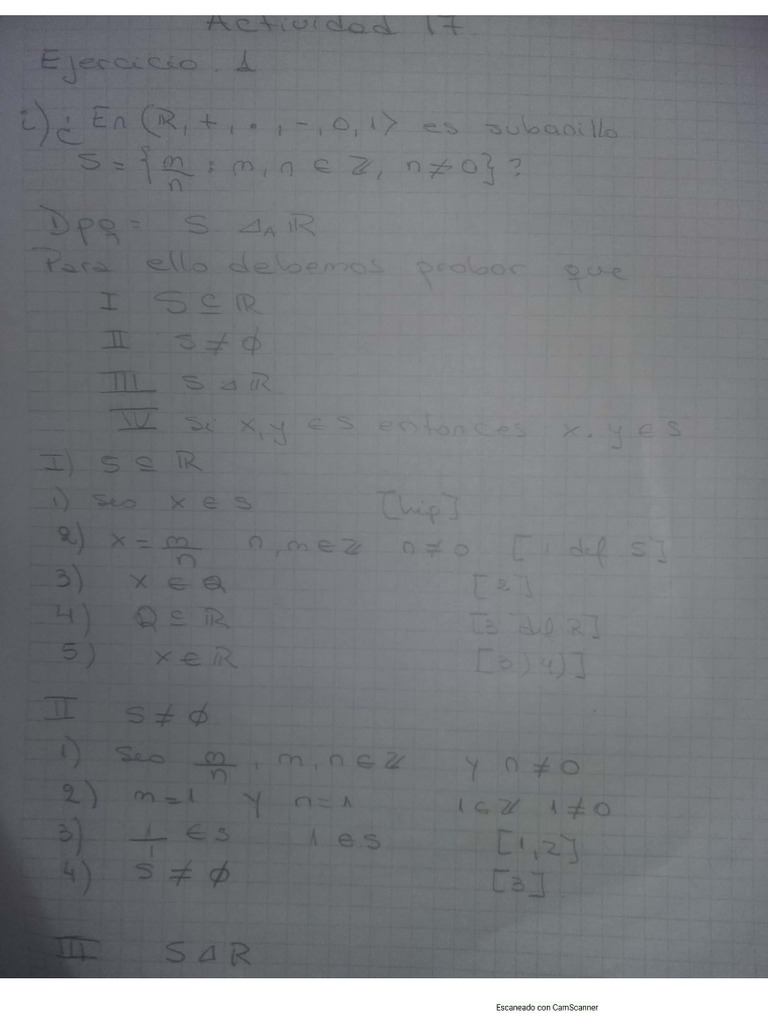 Actividad 17
Ejercicio. 1
i) ¿ En ⟨R, +, ·, -, 0, 1⟩ es subanillo
S = { m/n : m, n ∈ Z, n ≠ 0 } ?
Dpq = S Δ_A R
Para ello debemos probar que
I S ⊆ R
II S ≠ ∅
III S Δ R
IV Si x, y ∈ S entonces x. y ∈ S
I) S ⊆ R
1) sea x ∈ S [hip]
2) x = m/n n, m ∈ Z n ≠ 0 [1 def S]
3) x ∈ Q [2]
4) Q ⊆ R [3 def R]
5) x ∈ R [3) 4)]
II S ≠ ∅
1) Sea m/n, m, n ∈ Z y n ≠ 0
2) m = 1 y n = 1 1 ∈ Z 1 ≠ 0
3) 1/1 ∈ S 1 ∈ S [1, 2]
4) S ≠ ∅ [3]
III S Δ R
Escaneado con CamScanner